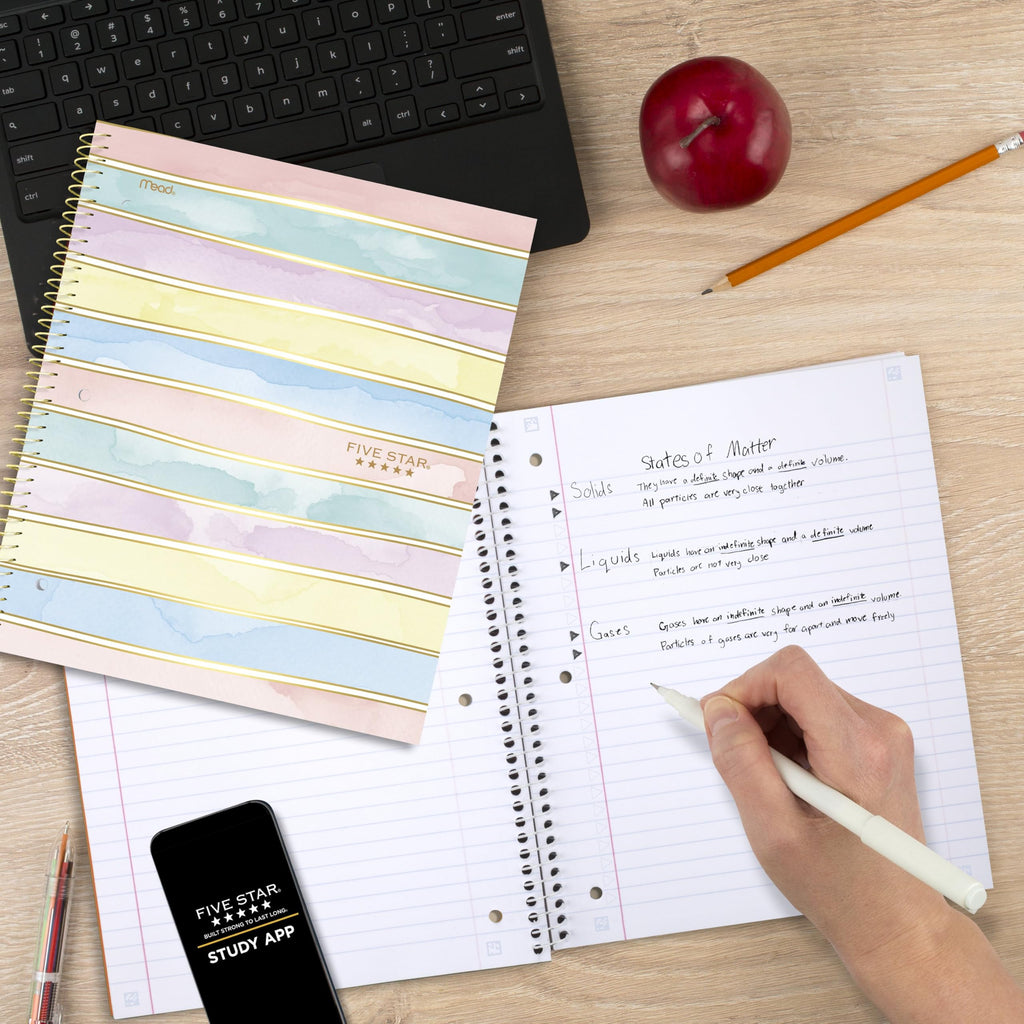 esc
! 1
@ 2
# 3
$ 4
% 5
tab
q w e r t y u i o p
enter
a s d f g h j k l
shift
z x c v b n m
shift
ctrl
alt
ctrl
Mead
FIVE STAR
States of Matter
Solids
They have a definite shape and a definite volume.
All particles are very close together
Liquids
Liquids have an indefinite shape and a definite volume
Particles are not very close
Gases
Gases have an indefinite shape and an indefinite volume
Particles of gases are very far apart and move freely
FIVE STAR
BUILT STRONG TO LAST LONG.
STUDY APP